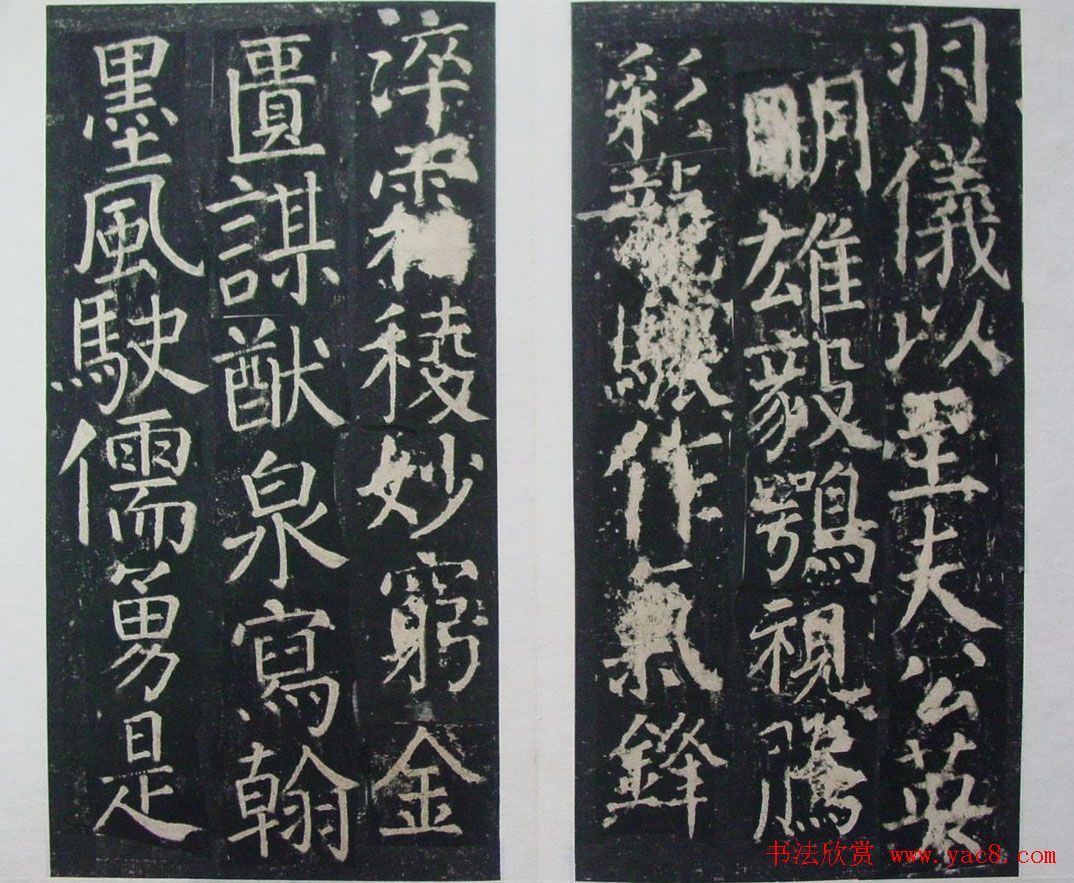 羽儀以至夫公英
明雄毅鶚視騰
彩龍驤作氣鋒
淬霜稜妙窮金
匱謀猷泉寫翰
墨風駛儒勇是
书法欣赏 www.yac8.com